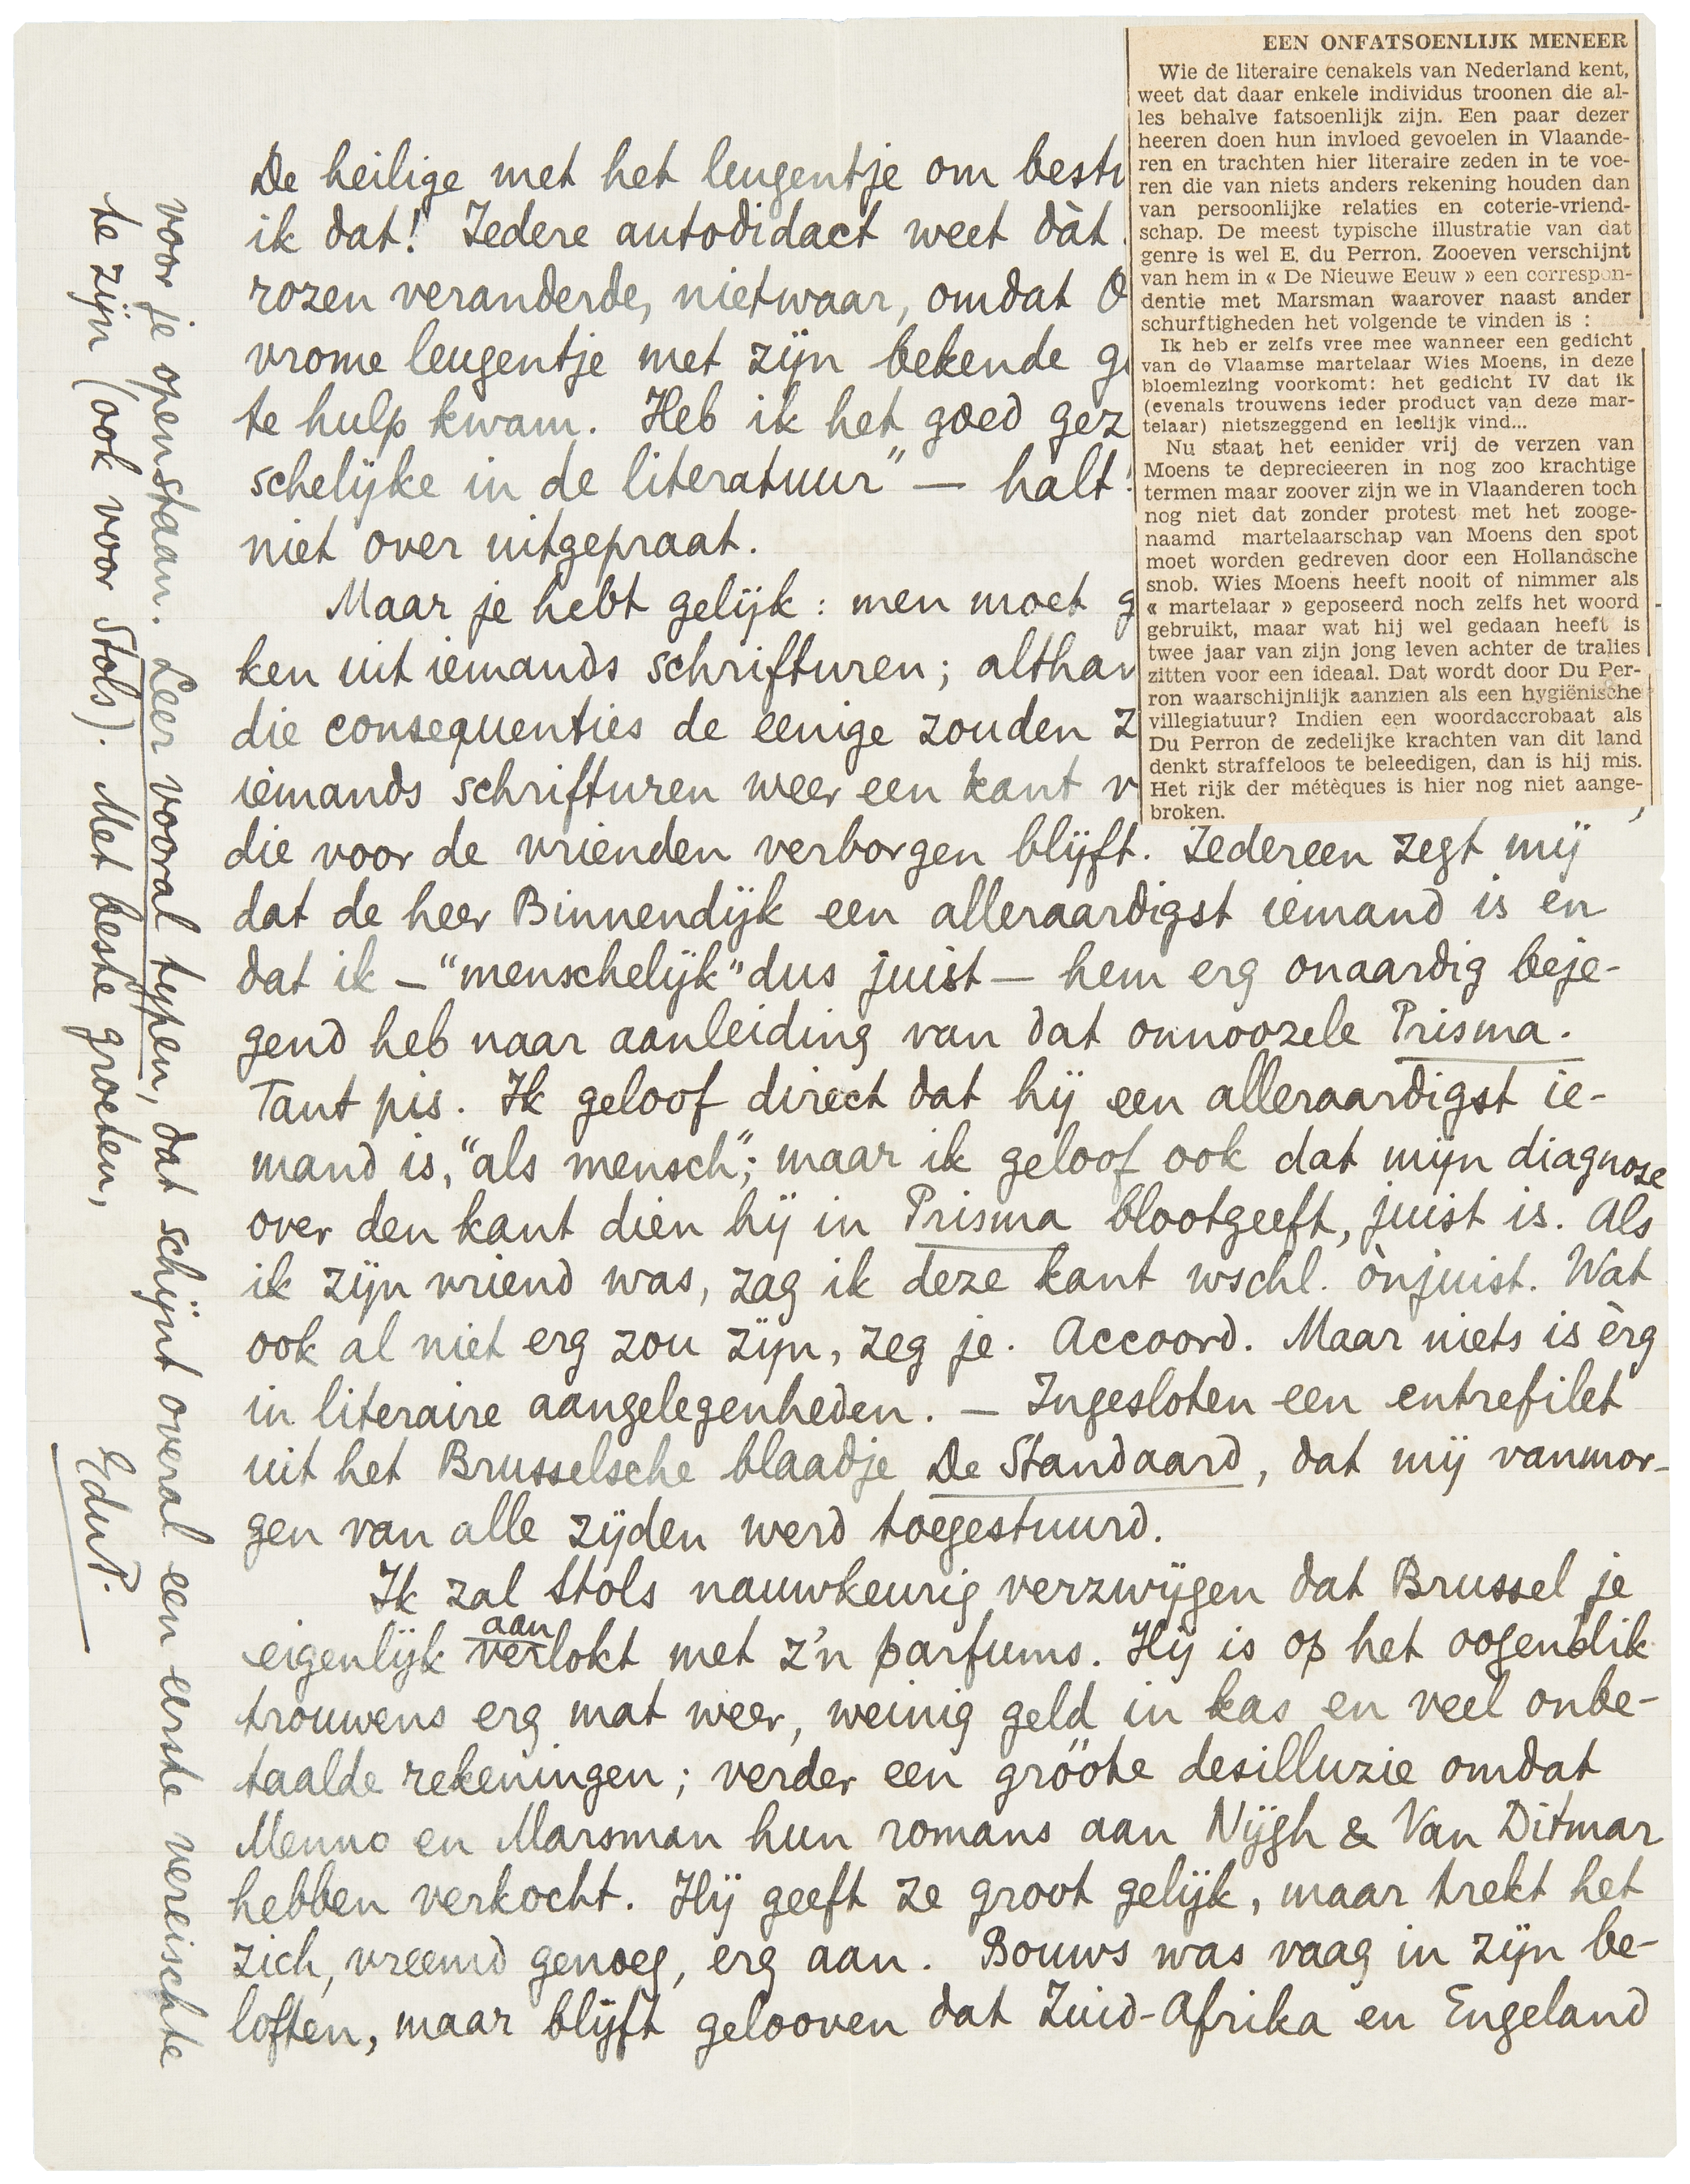 De heilige met het leugentje om
ik dat! Iedere autodidact weet dàt
rozen veranderde, nietwaar, omdat
vrome leugentje met zijn bekende
te hulp kwam. Heb ik het goed
schelijke in de literatuur" — halt!
niet over uitgepraat.
Maar je hebt gelijk: men moet
ken uit iemands schrifturen;
die consequenties de eenige zouden
iemands schrifturen weer een kant
die voor de vrienden verborgen blijft. Iedereen zegt mij
dat de heer Binnendijk een alleraardigst iemand is en
dat ik — "menschelijk" dus juist — hem erg onaardig beje-
gend heb naar aanleiding van dat onnoozele Prisma.
Tant pis. Ik geloof direct dat hij een alleraardigst ie-
mand is, "als mensch"; maar ik geloof ook dat mijn diagnose
over den kant dien hij in Prisma blootgeeft, juist is. Als
ik zijn vriend was, zag ik deze kant wschl. ònjuist. Wat
ook al niet erg zou zijn, zeg je. Accoord. Maar niets is èrg
in literaire aangelegenheden. — Ingesloten een entrefilet
uit het Brusselsche blaadje De Standaard, dat mij vanmor-
gen van alle zijden werd toegestuurd.
Ik zal Stols nauwkeurig verzwijgen dat Brussel je
aan
eigenlijk verlokt met z'n parfums. Hij is op het oogenblik
trouwens erg mat weer, weinig geld in kas en veel onbe-
taalde rekeningen; verder een gröote desilluzie omdat
Menno en Marsman hun romans aan Nijgh & Van Ditmar
hebben verkocht. Hij geeft ze groot gelijk, maar trekt het
zich, vreemd genoeg, erg aan. Bouws was vaag in zijn be-
loften, maar blijft gelooven dat Zuid-Afrika en Engeland
voor je openstaan. Leer vooral typen, dat schijnt overal een eerste vereischte
te zijn (ook voor Stols). Met beste groeten,
EduP.
EEN ONFATSOENLIJK MENEER
Wie de literaire cenakels van Nederland kent,
weet dat daar enkele individus troonen die al-
les behalve fatsoenlijk zijn. Een paar dezer
heeren doen hun invloed gevoelen in Vlaande-
ren en trachten hier literaire zeden in te voe-
ren die van niets anders rekening houden dan
van persoonlijke relaties en coterie-vriend-
schap. De meest typische illustratie van dat
genre is wel E. du Perron. Zooeven verschijnt
van hem in « De Nieuwe Eeuw » een correspon-
dentie met Marsman waarover naast ander
schurftigheden het volgende te vinden is :
Ik heb er zelfs vree mee wanneer een gedicht
van de Vlaamse martelaar Wies Moens, in deze
bloemlezing voorkomt: het gedicht IV dat ik
(evenals trouwens ieder product van deze mar-
telaar) nietszeggend en leelijk vind...
Nu staat het eenider vrij de verzen van
Moens te deprecieeren in nog zoo krachtige
termen maar zoover zijn we in Vlaanderen toch
nog niet dat zonder protest met het zooge-
naamd martelaarschap van Moens den spot
moet worden gedreven door een Hollandsche
snob. Wies Moens heeft nooit of nimmer als
« martelaar » geposeerd noch zelfs het woord
gebruikt, maar wat hij wel gedaan heeft is
twee jaar van zijn jong leven achter de tralies
zitten voor een ideaal. Dat wordt door Du Per-
ron waarschijnlijk aanzien als een hygiënische
villegiatuur? Indien een woordaccrobaat als
Du Perron de zedelijke krachten van dit land
denkt straffeloos te beleedigen, dan is hij mis.
Het rijk der métèques is hier nog niet aange-
broken.